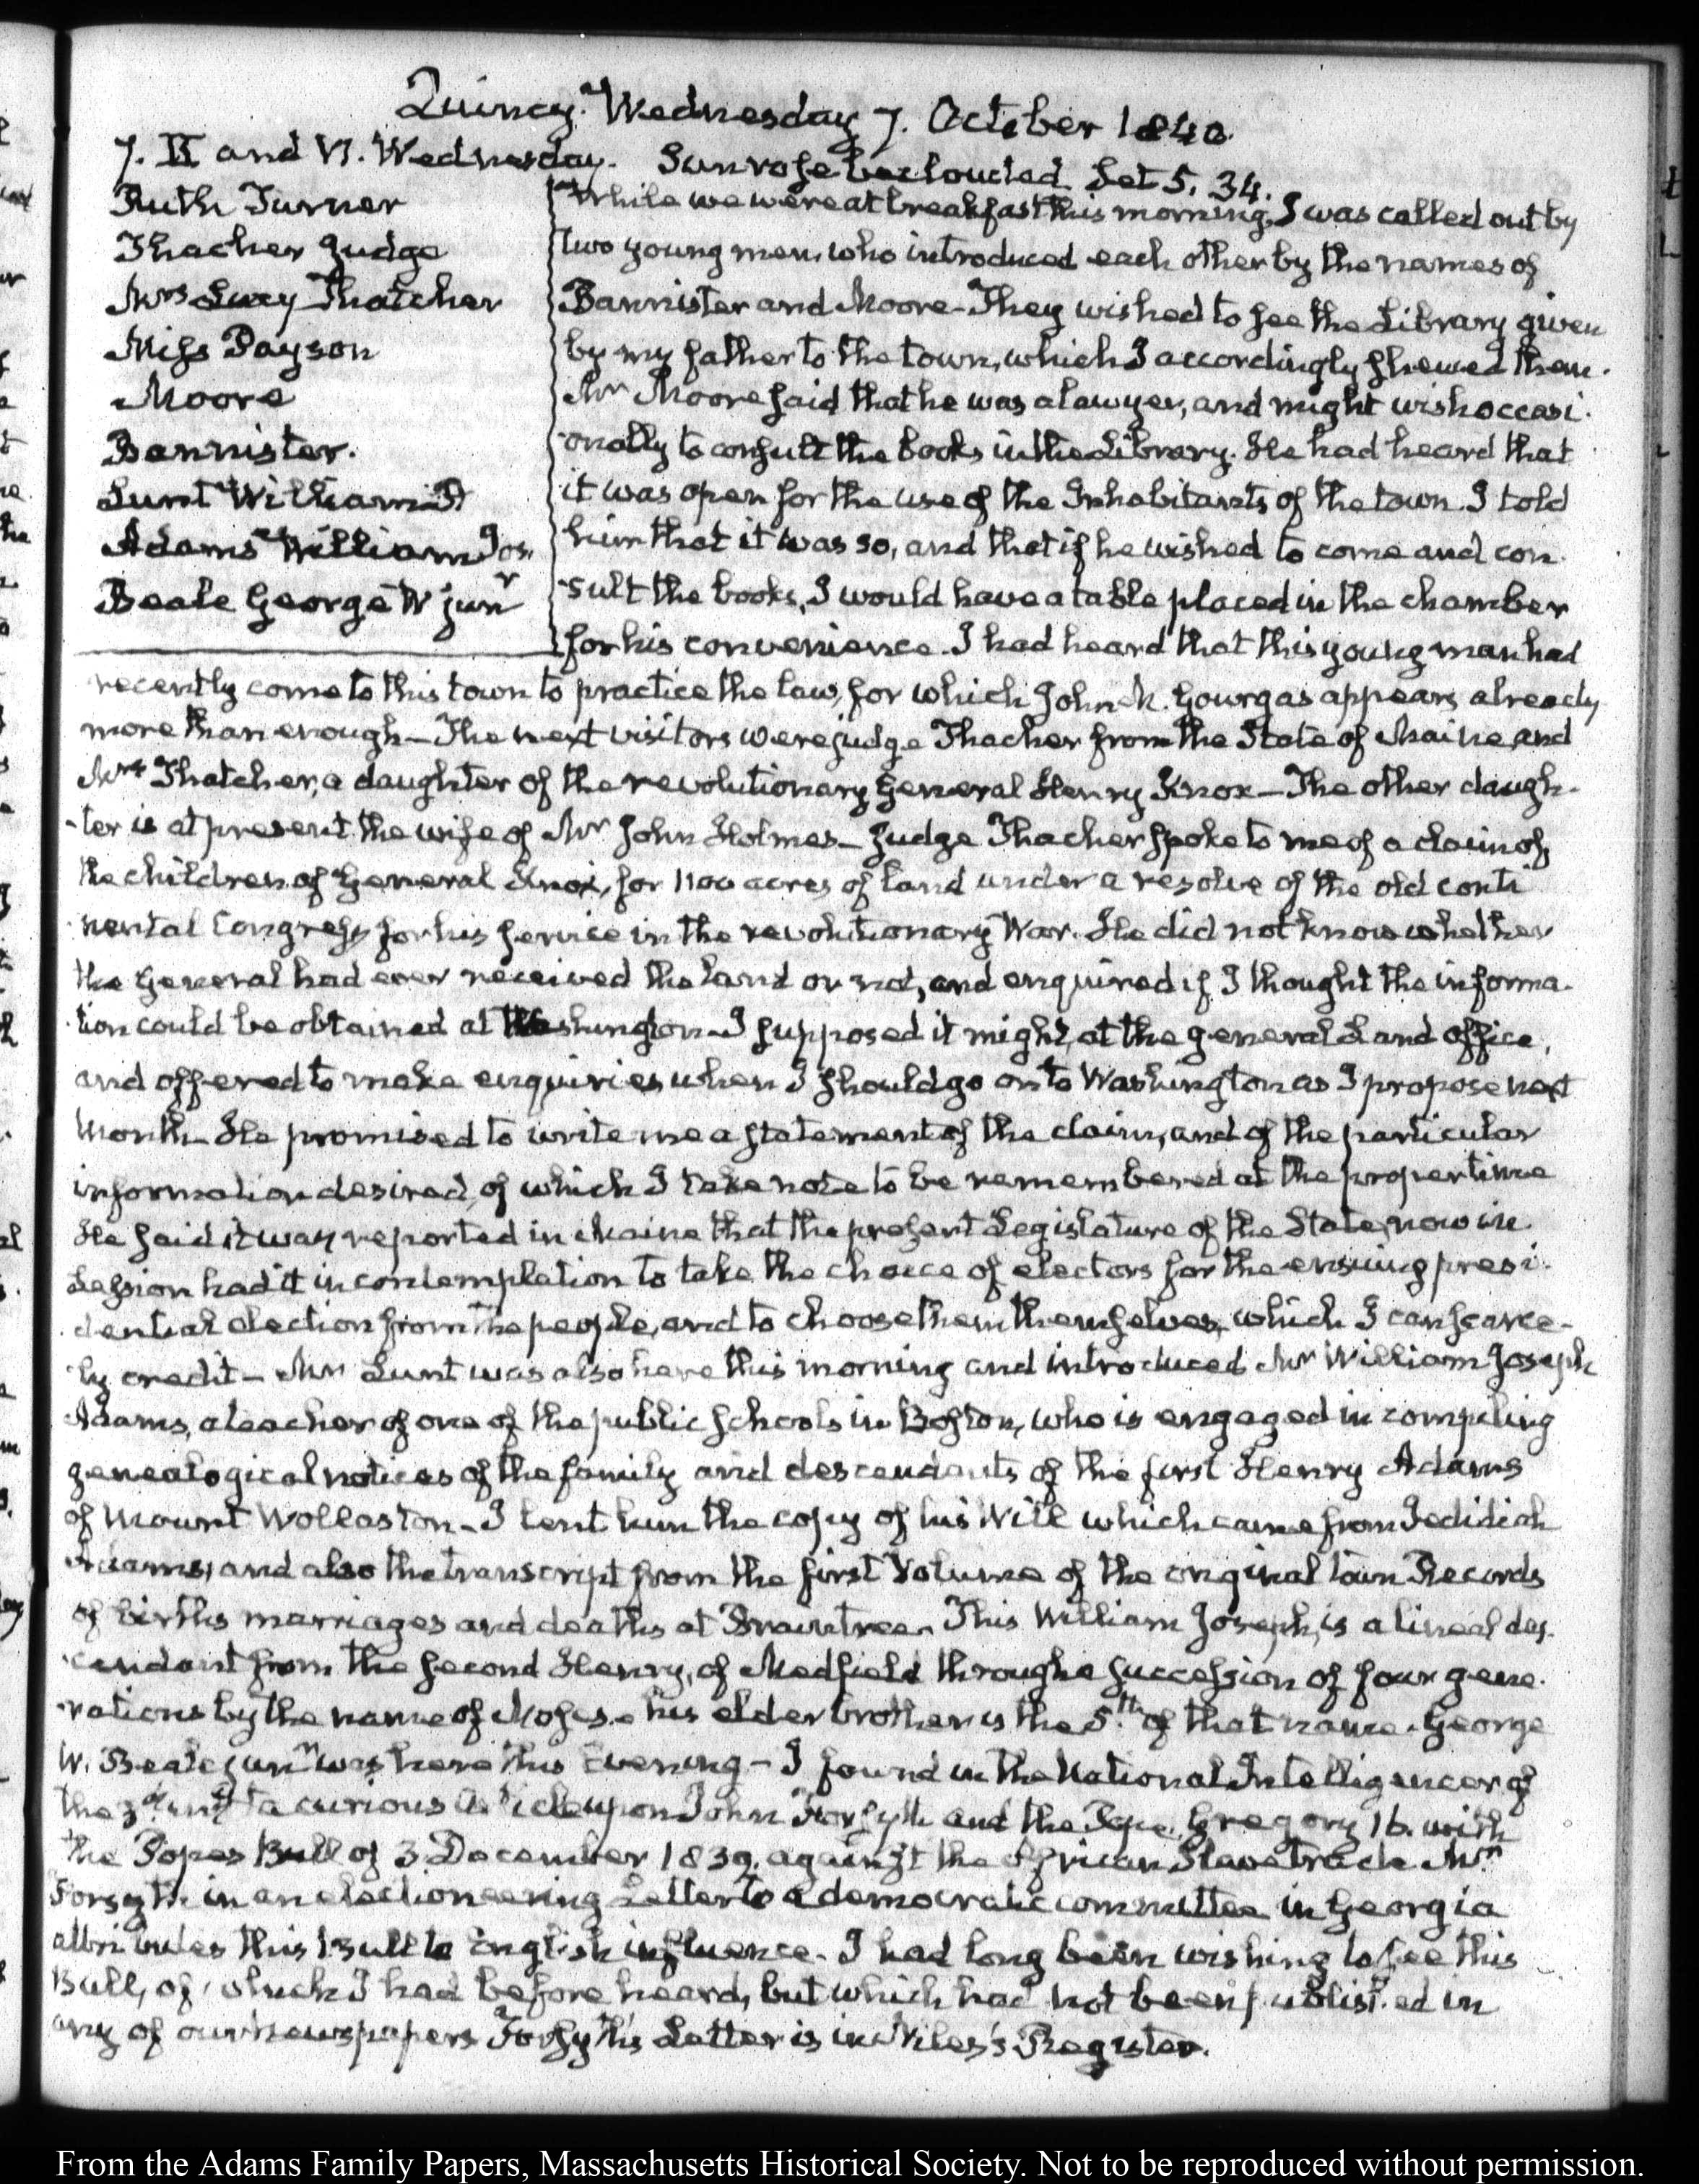 Quincy. Wednesday 7. October 1840.
7. IV and VI. Wednesday. Sun rose beclouded Set 5. 34.
Ruth Turner
Thacher Judge
Mrs Lucy Thatcher
Miss Payson
Moore
Bannister.
Lunt William P
Adams William Jos.
Beale George W junr
While we were at breakfast this morning, I was called out by
two young men, who introduced each other by the names of
Bannister and Moore - They wished to see the Library given
by my father to the town, which I accordingly shewed them.
Mr Moore said that he was a lawyer, and might wish occasi-
onally to consult the books in the Library. He had heard that
it was open for the use of the Inhabitants of the town. I told
him that it was so, and that if he wished to come and con-
sult the books, I would have a table placed in the chamber
for his convenience. I had heard that this young man had
recently come to this town to practice the law, for which John M. Gourgas appears already
more than enough - The next visitors were judge Thacher from the State of Maine, and
Mrs Thatcher, a daughter of the revolutionary General Henry Knox - The other daugh-
-ter is at present the wife of Mr John Holmes - Judge Thacher spoke to me of a claim of
the children of General Knox, for 1100 acres of land under a resolve of the old conti-
nental Congress for his service in the revolutionary War. He did not know whether
the General had ever received the land or not, and enquired if I thought the informa-
-tion could be obtained at Washington - I supposed it might, at the general Land office,
and offered to make enquiries when I should go on to Washington as I propose next
Month - He promised to write me a statement of the claim, and of the particular
information desired, of which I take note to be remembered at the proper time
He said it was reported in Maine that the present Legislature of the State, now in
Session had it in contemplation to take the choice of electors for the ensuing presi-
dential election from the people, and to choose them themselves, which I can scarce-
ly credit - Mr Lunt was also here this morning and introduced Mr William Joseph
Adams, a teacher of one of the public schools in Boston, who is engaged in compiling
genealogical notices of the family and descendants of the first Henry Adams
of Mount Wollaston - I lent him the copy of his Will which came from Jedidiah
Adams, and also the transcript from the first Volume of the original town Records
of births marriages and deaths at Braintree. This William Joseph, is a lineal des-
-cendant from the second Henry, of Medfield through a succession of four gene-
-rations by the name of Moses. his elder brother is the 5th of that name. George
W. Beale junr was here this Evening - I found in the National Intelligencer of
the 3d inst a curious Article upon John Forsyth and the Pope Gregory 16. with
the Popes Bull of 3 December 1839. against the African Slave trade Mr
Forsyth in an electioneering Letter to a democratic committee in Georgia
attributes this Bull to English influence. I had long been wishing to see this
Bull, of which I had before heard, but which had not been published in
any of our Newspapers Forsyth's Letter is in Niles's Register.
From the Adams Family Papers, Massachusetts Historical Society. Not to be reproduced without permission.